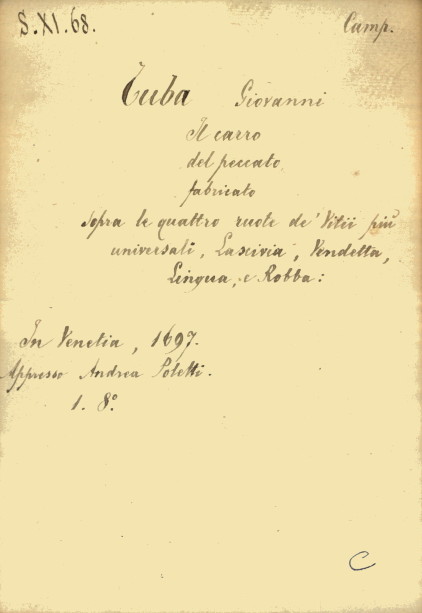 S. XI. 68.
Camp.
Tuba Giovanni
Il carro
del peccato
fabricato
sopra le quattro ruote de' Vitii più
universali, Lascivia, Vendetta,
Lingua, e Robba:
In Venetia, 1697.
Appresso Andrea Poletti.
1. 8.º
C